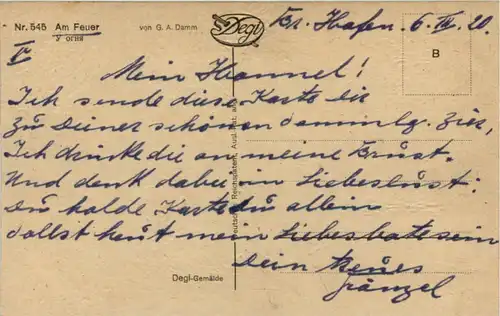 Nr. 545 Am Feuer
У огня
von G. A. Damm
Degi
Br. Hafen. 6. IV. 20.
B
V
Mein Hannel!
Ich sende diese Karte dir
zu Deiner schönen Sammlg. zier,
Ich drücke die an meine Brust.
Und denk dabei in Liebeslust:
Du holde Karte du allein
sollst heut mein Liebesbote sein
Dein treues
Fränzel
Degi-Gemälde
Deutsches Reichspatent, Ausl. Pat. ang.